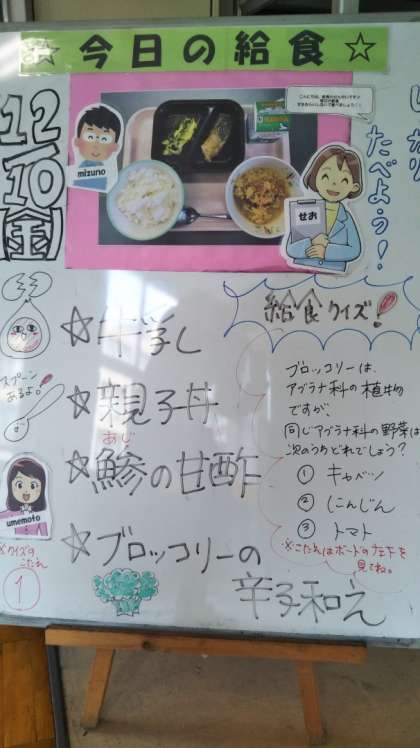 ☆今日の給食☆
12/10(金)
たべよう!
mizuno
せお
給食クイズ!
☆牛乳
スプーン
あるよ!
☆親子丼
あじ
☆鯵の甘酢
umemoto
☆ブロッコリーの
辛子和え
ブロッコリーは、
アブラナ科の植物
ですが、
同じアブラナ科の野菜は
次のうちどれでしょう?
① キャベツ
② にんじん
③ トマト
※こたえはボードの左下を
見てね。
※クイズの
こたえ
①